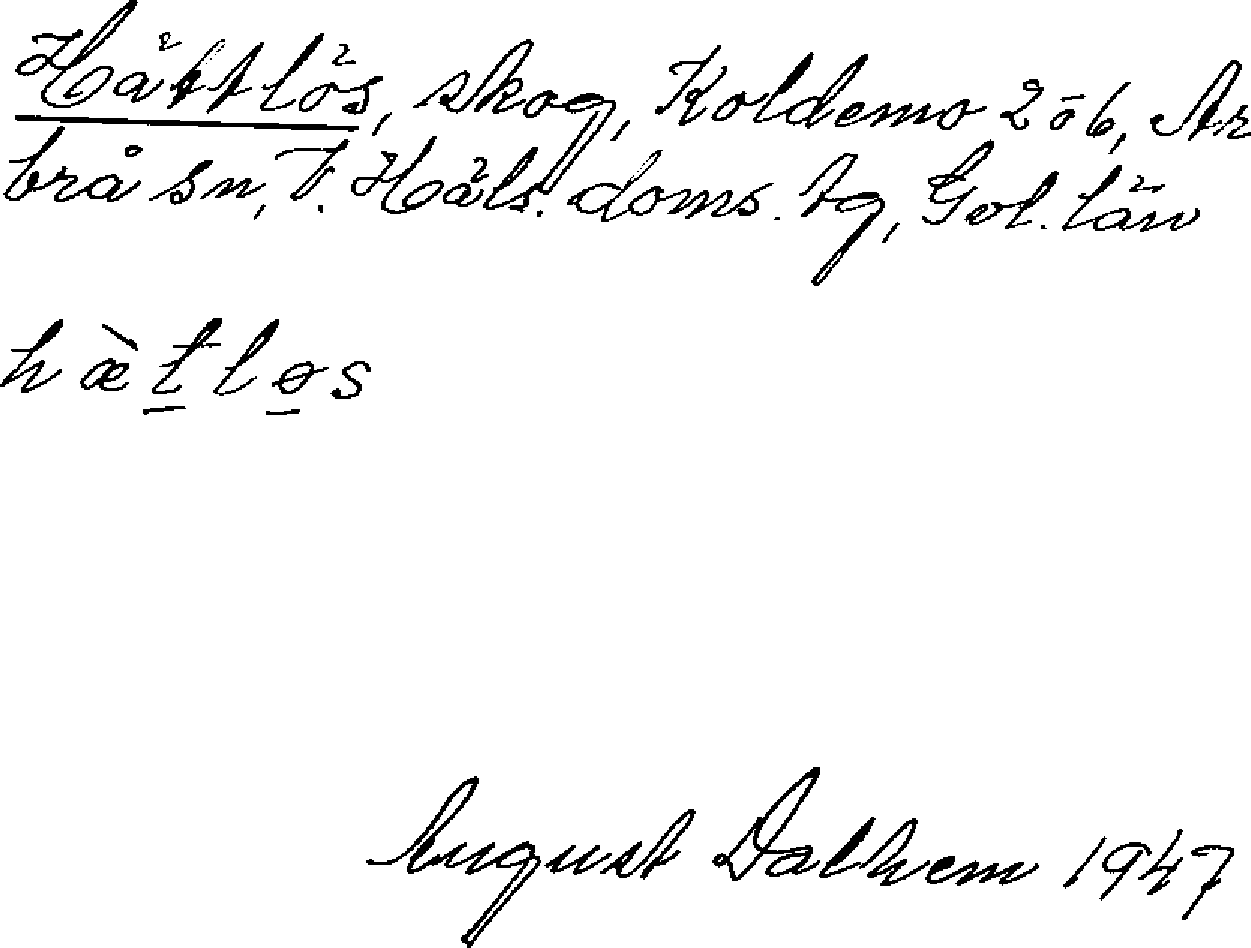 Hättlös, skog, Koldemo 2 o 6, Ar
brå sn, V. Häls. doms. tg, Gvl. län
hæ̀t̠lø̠s
August Dalhem 1947